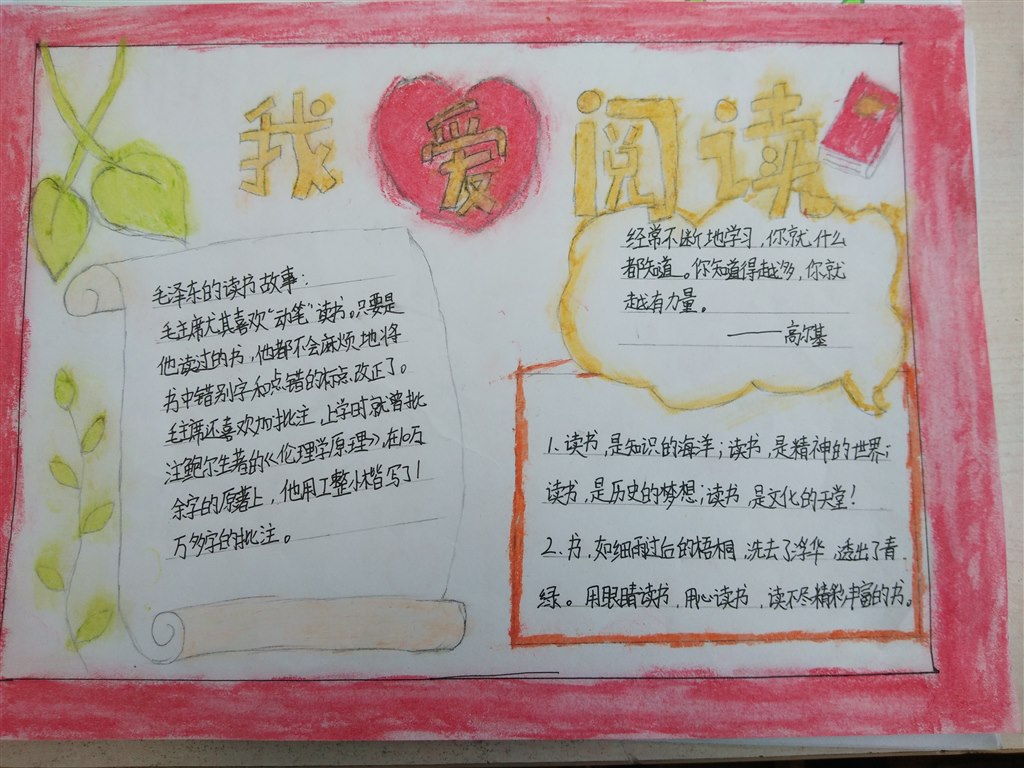 我爱阅读
毛泽东的读书故事：
毛主席尤其喜欢“动笔”读书。只要是
他读过的书，他都不会麻烦地将
书中错别字和点错的标点改正了。
毛主席还喜欢加批注，上学时就曾批
注鲍尔生著的《伦理学原理》，在10万
余字的原著上，他用工整小楷写了1
万多字的批注。
经常不断地学习，你就什么
都知道。你知道得越多，你就
越有力量。
——高尔基
1.读书，是知识的海洋；读书，是精神的世界；
读书，是历史的梦想；读书，是文化的天堂！
2.书，如细雨过后的梧桐，洗去了浮华，透出了青
绿。用眼睛读书，用心读书，读不尽精彩丰富的书。